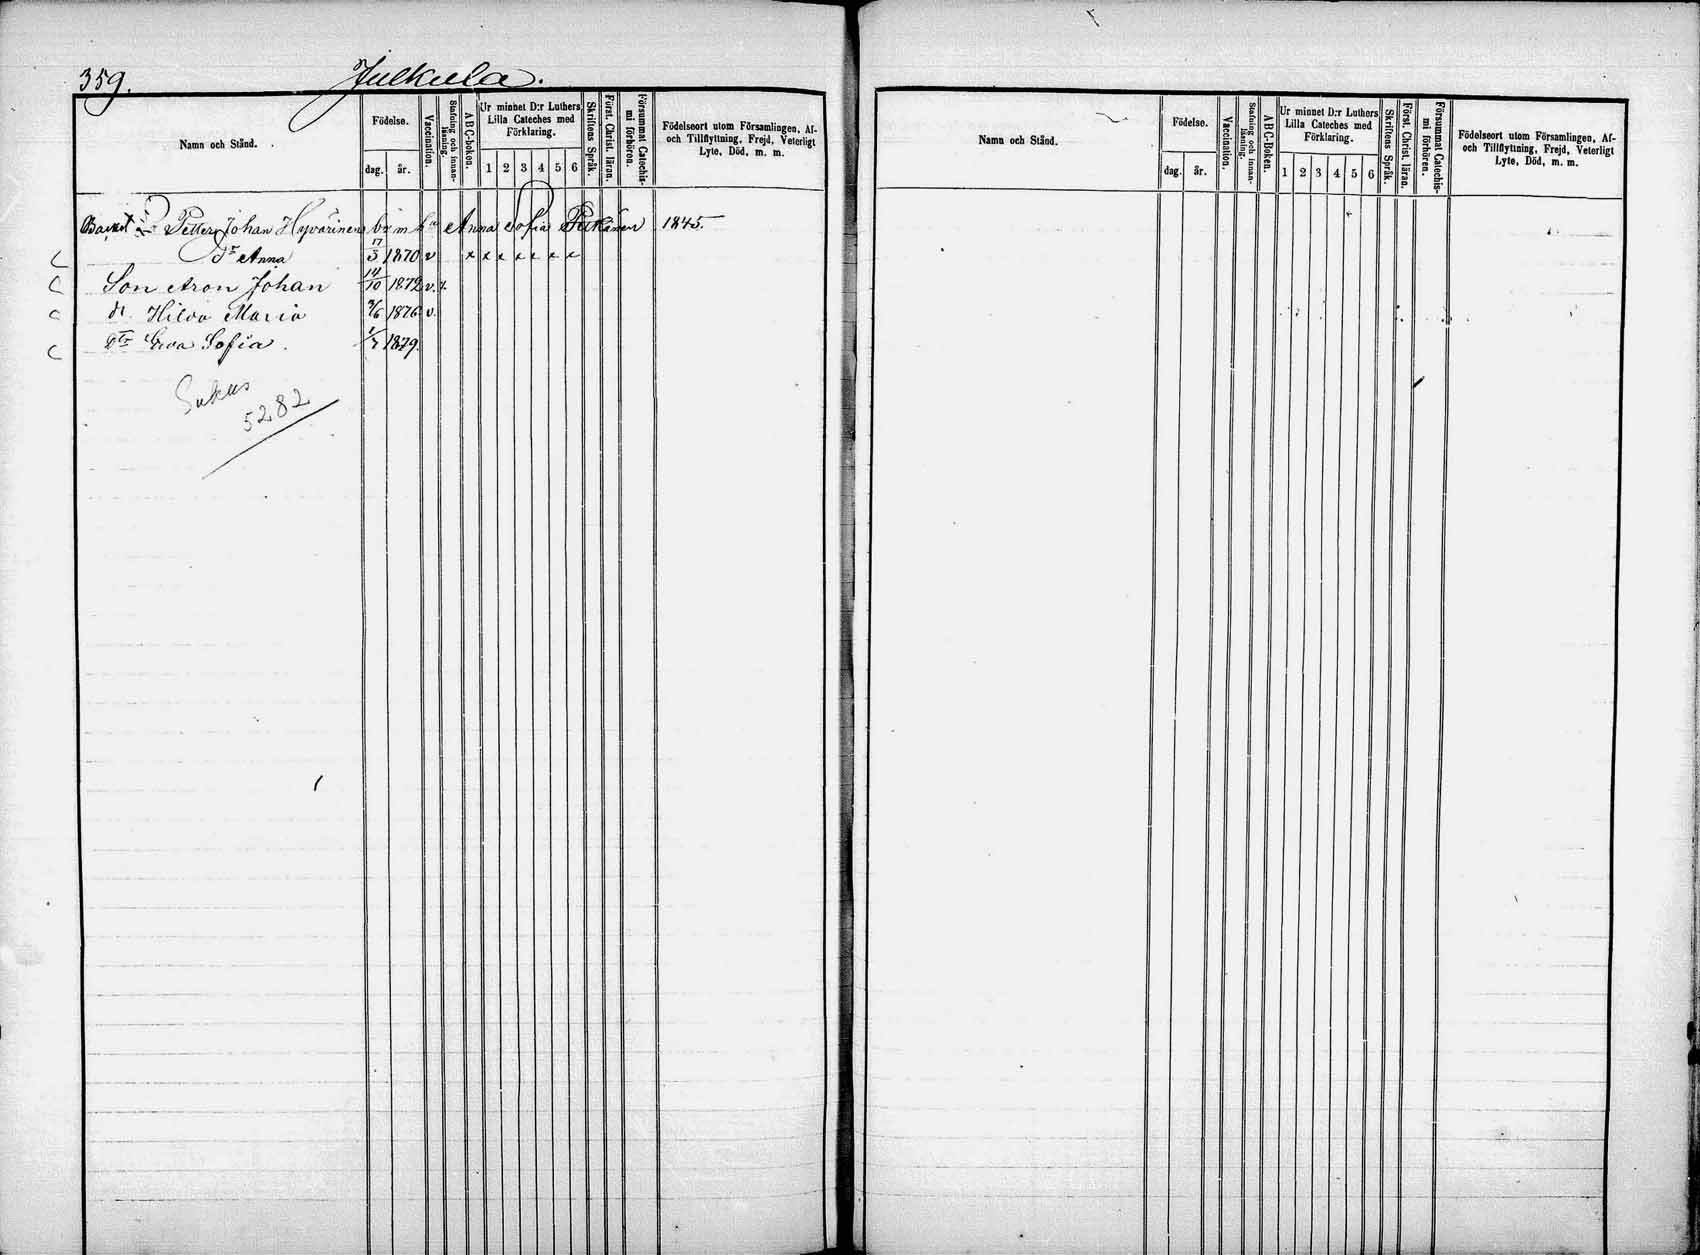 359. Julkula.
Namn och Stånd.
Födelse.
dag. år.
Vaccination.
Stafning och innanläsning.
ABC-boken.
Ur minnet D:r Luthers
Lilla Cateches med
Förklaring.
1 2 3 4 5 6
Skriftens Språk.
Först. Christ. läran.
Försummat Catechismi förhören.
Födelseort utom Församlingen, Af-
och Tillflyttning, Frejd, Veterligt
Lyte, Död, m. m.
Petter Johan Hyvärinen Anna Sofia 1845.
Dr Anna 17/3 1870 v x x x x x x x
Son Aron Johan 14/10 1872 v.
dr. Hilda Maria 1876 v.
Dtr Eeva Sofia. 1879.
Sukus
5282
Namn och Stånd.
Födelse.
dag. år.
Vaccination.
Stafning och innanläsning.
ABC-Boken.
Ur minnet D:r Luthers
Lilla Cateches med
Förklaring.
1 2 3 4 5 6
Skriftens Språk.
Först. Christ. läran.
Försummat Catechismi förhören.
Födelseort utom Församlingen, Af-
och Tillflyttning, Frejd, Veterligt
Lyte, Död, m. m.